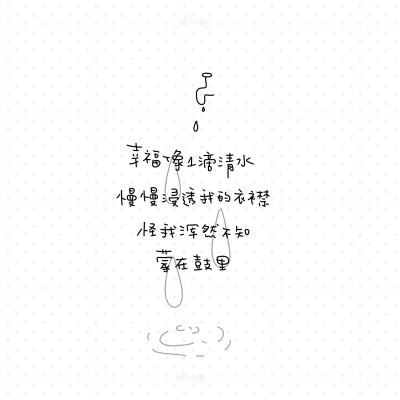 幸福像1滴清水
慢慢浸透我的衣襟
怪我浑然不知
蒙在鼓里